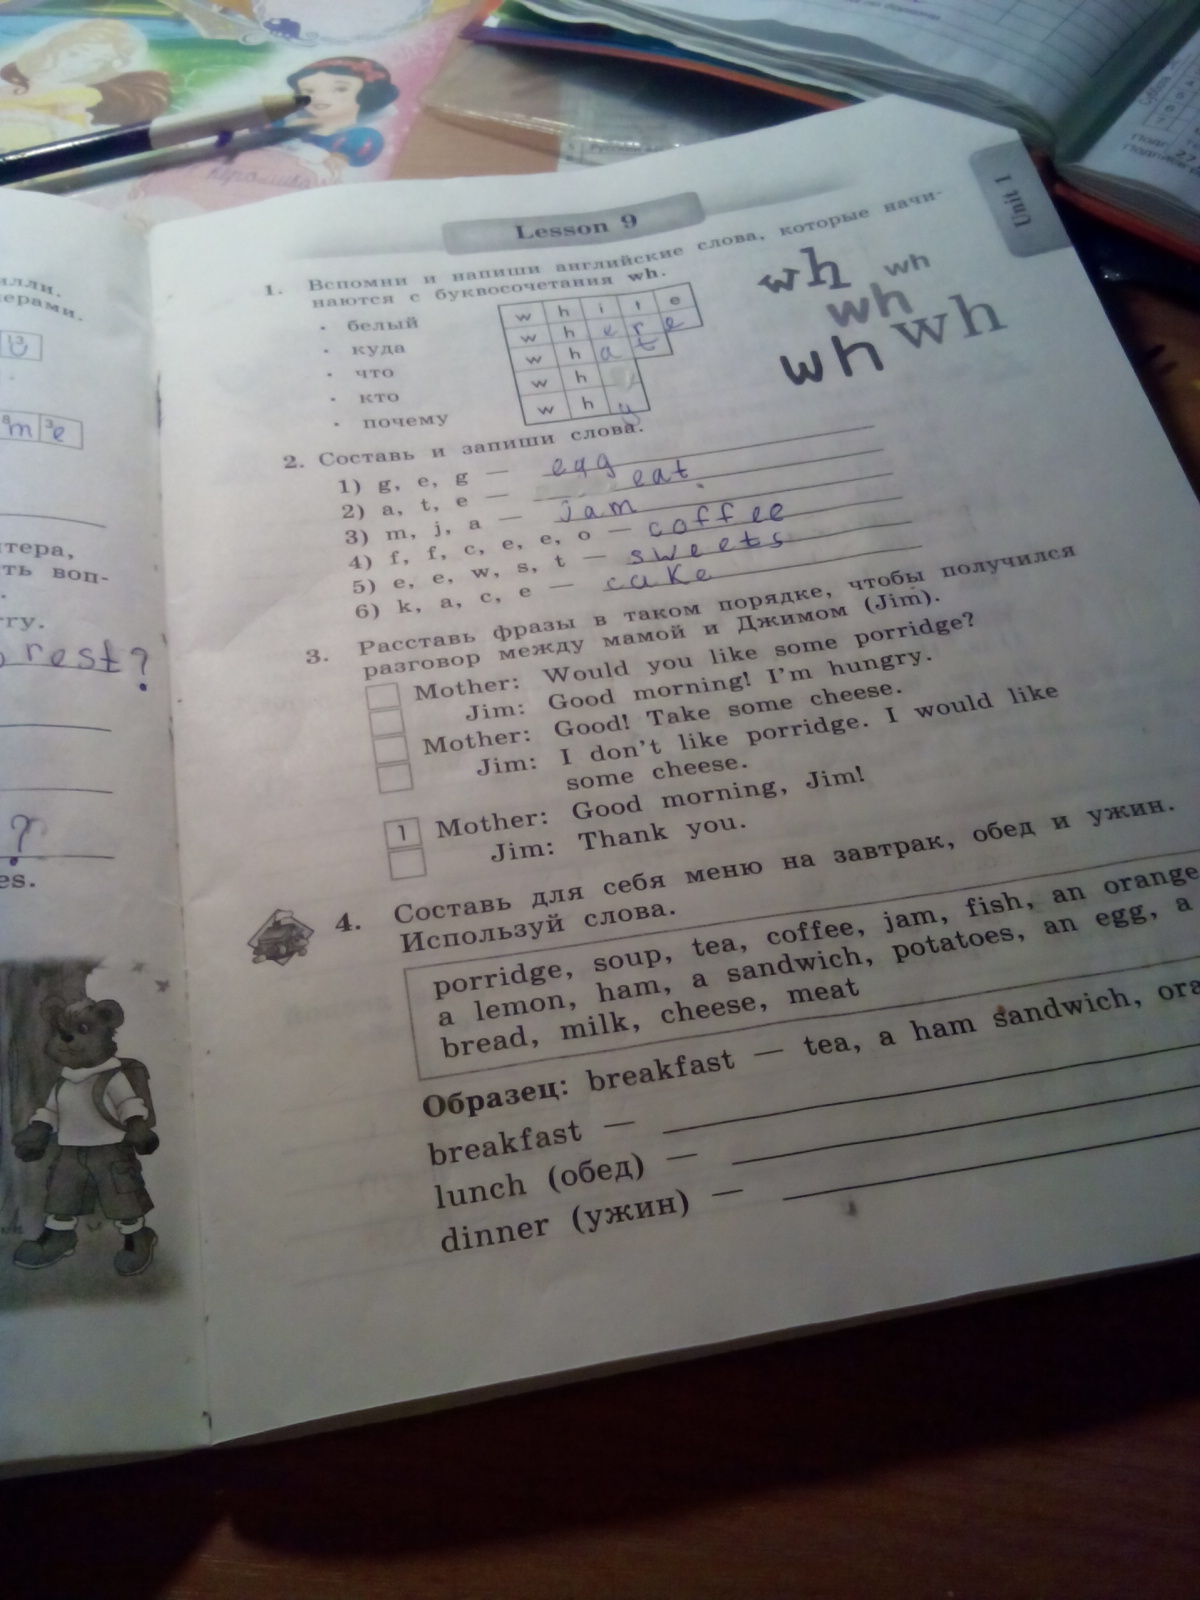 Lesson 9
Unit 1
1. Вспомни и напиши английские слова, которые начи-
наются с буквосочетания wh.
• белый
• куда
• что
• кто
• почему
w h i t e
w h e r e
w h a t
w h
w h y
wh wh
wh
wh wh
2. Составь и запиши слова.
1) g, e, g — egg
2) a, t, e — eat
3) m, j, a — jam
4) f, f, c, e, e, o — coffee
5) e, e, w, s, t — sweets
6) k, a, c, e — cake
3. Расставь фразы в таком порядке, чтобы получился
разговор между мамой и Джимом (Jim).
Mother: Would you like some porridge?
Jim: Good morning! I'm hungry.
Mother: Good! Take some cheese.
Jim: I don't like porridge. I would like
some cheese.
1 Mother: Good morning, Jim!
Jim: Thank you.
4. Составь для себя меню на завтрак, обед и ужин.
Используй слова.
porridge, soup, tea, coffee, jam, fish, an orange
a lemon, ham, a sandwich, potatoes, an egg, a
bread, milk, cheese, meat
Образец: breakfast — tea, a ham sandwich, ora
breakfast —
lunch (обед) —
dinner (ужин) —
илли.
черами.
8m 3e
тера,
ть воп-
гу.
rest?
?
es.